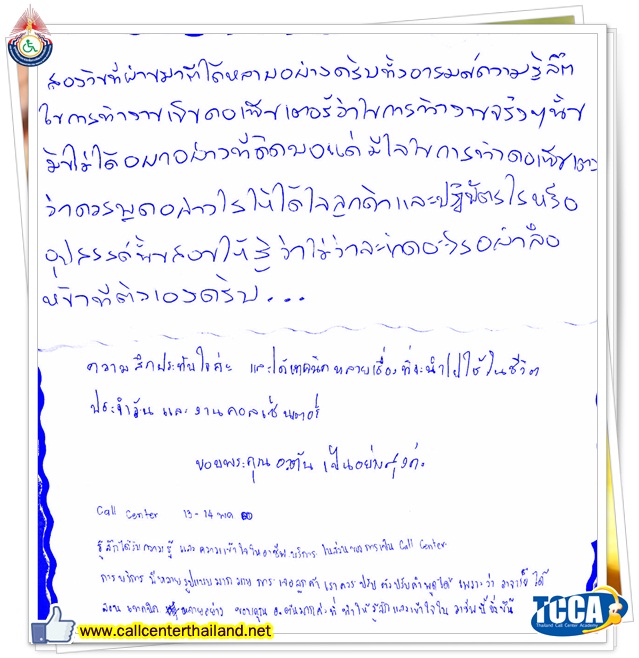 สองวันที่ผ่านมาที่ได้หลายอย่างครับทั้งอารมณ์ความรู้สึก
ในการทำงานเป็นคอลเซ็นเตอร์ว่าในการทำงานจริงๆนั้น
มันไม่ได้อย่างที่คิด มีใจในการทำคอลเซ็นเตอร์
ว่าควรพูดอย่างไรให้ได้ใจลูกค้าและ
อุปสรรค์นั้นสอนให้รู้ว่าไม่ว่า
หน้าที่ตัวเองครับ...
ความรู้สึกประทับใจค่ะ และได้เทคนิคหลายเรื่องที่จะนำไปใช้ในชีวิต
ประจำวัน และ งานคอลเซ็นเตอร์
ขอบพระคุณ เป็นอย่างสูงค่ะ
Call Center 13-14 พค 60
รู้สึกได้รับความรู้ และความเข้าใจในอาชีพบริการ ในส่วนของการเป็น Call Center
การบริการ มีหลายรูปแบบมากมาย การเจอลูกค้า เราควรปรับ เพราะว่า อาจารย์ ได้
สอน เทคนิค หลายอย่าง ขอบคุณ ที่ทำให้รู้สึกและเข้าใจใน อาชีพนี้
www.callcenterthailand.net
TCCA
Thailand Call Center Academy